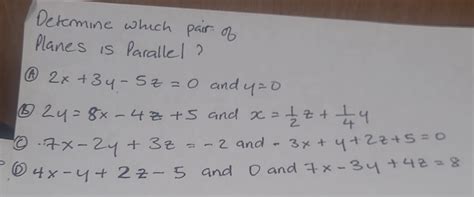 Determine which pair of
Planes is Parallel ?
Ⓐ 2x + 3y - 5z = 0 and y = 0
Ⓑ 2y = 8x - 4z + 5 and x = 1/2 z + 1/4 y
Ⓒ -7x - 2y + 3z = -2 and - 3x + y + 2z + 5 = 0
Ⓓ 4x - y + 2z - 5 and 0 and 7x - 3y + 4z = 8